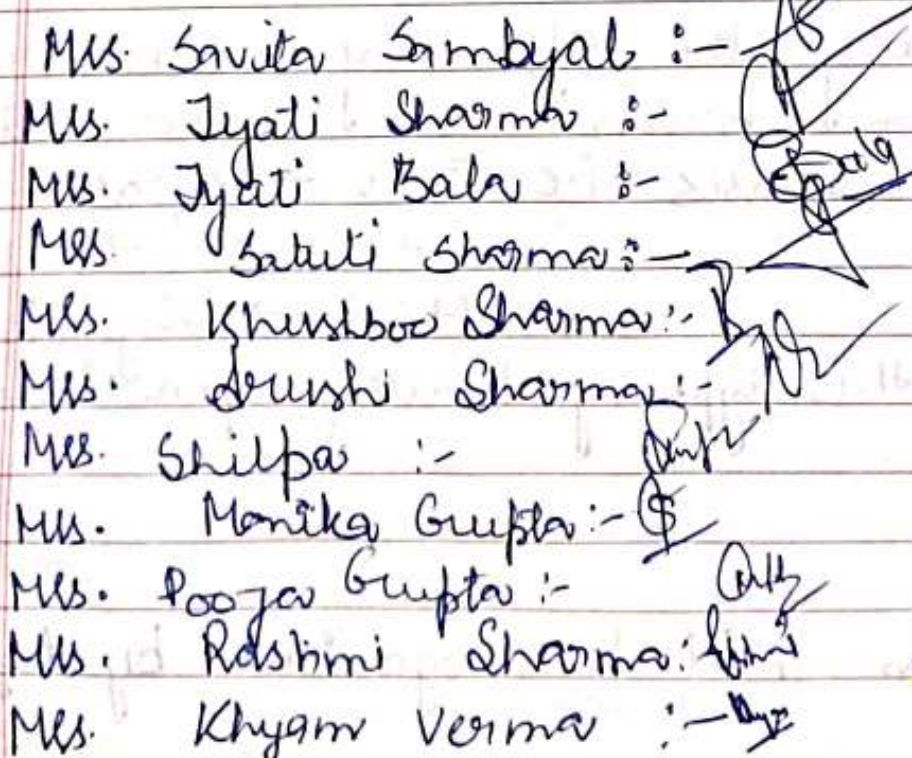 Mrs. Savita Sambyal :-
Mrs. Jyati Sharma :-
Mrs. Jyati Bala :- Bala
Mrs. Sharma :-
Mrs. Khushboo Sharma :-
Mrs. Srushi Sharma :-
Mrs. Shilpa :-
Mrs. Monika Gupta :-
Mrs. Pooja Gupta :-
Mrs. Rashmi Sharma :
Mrs. Khyam Verma :-